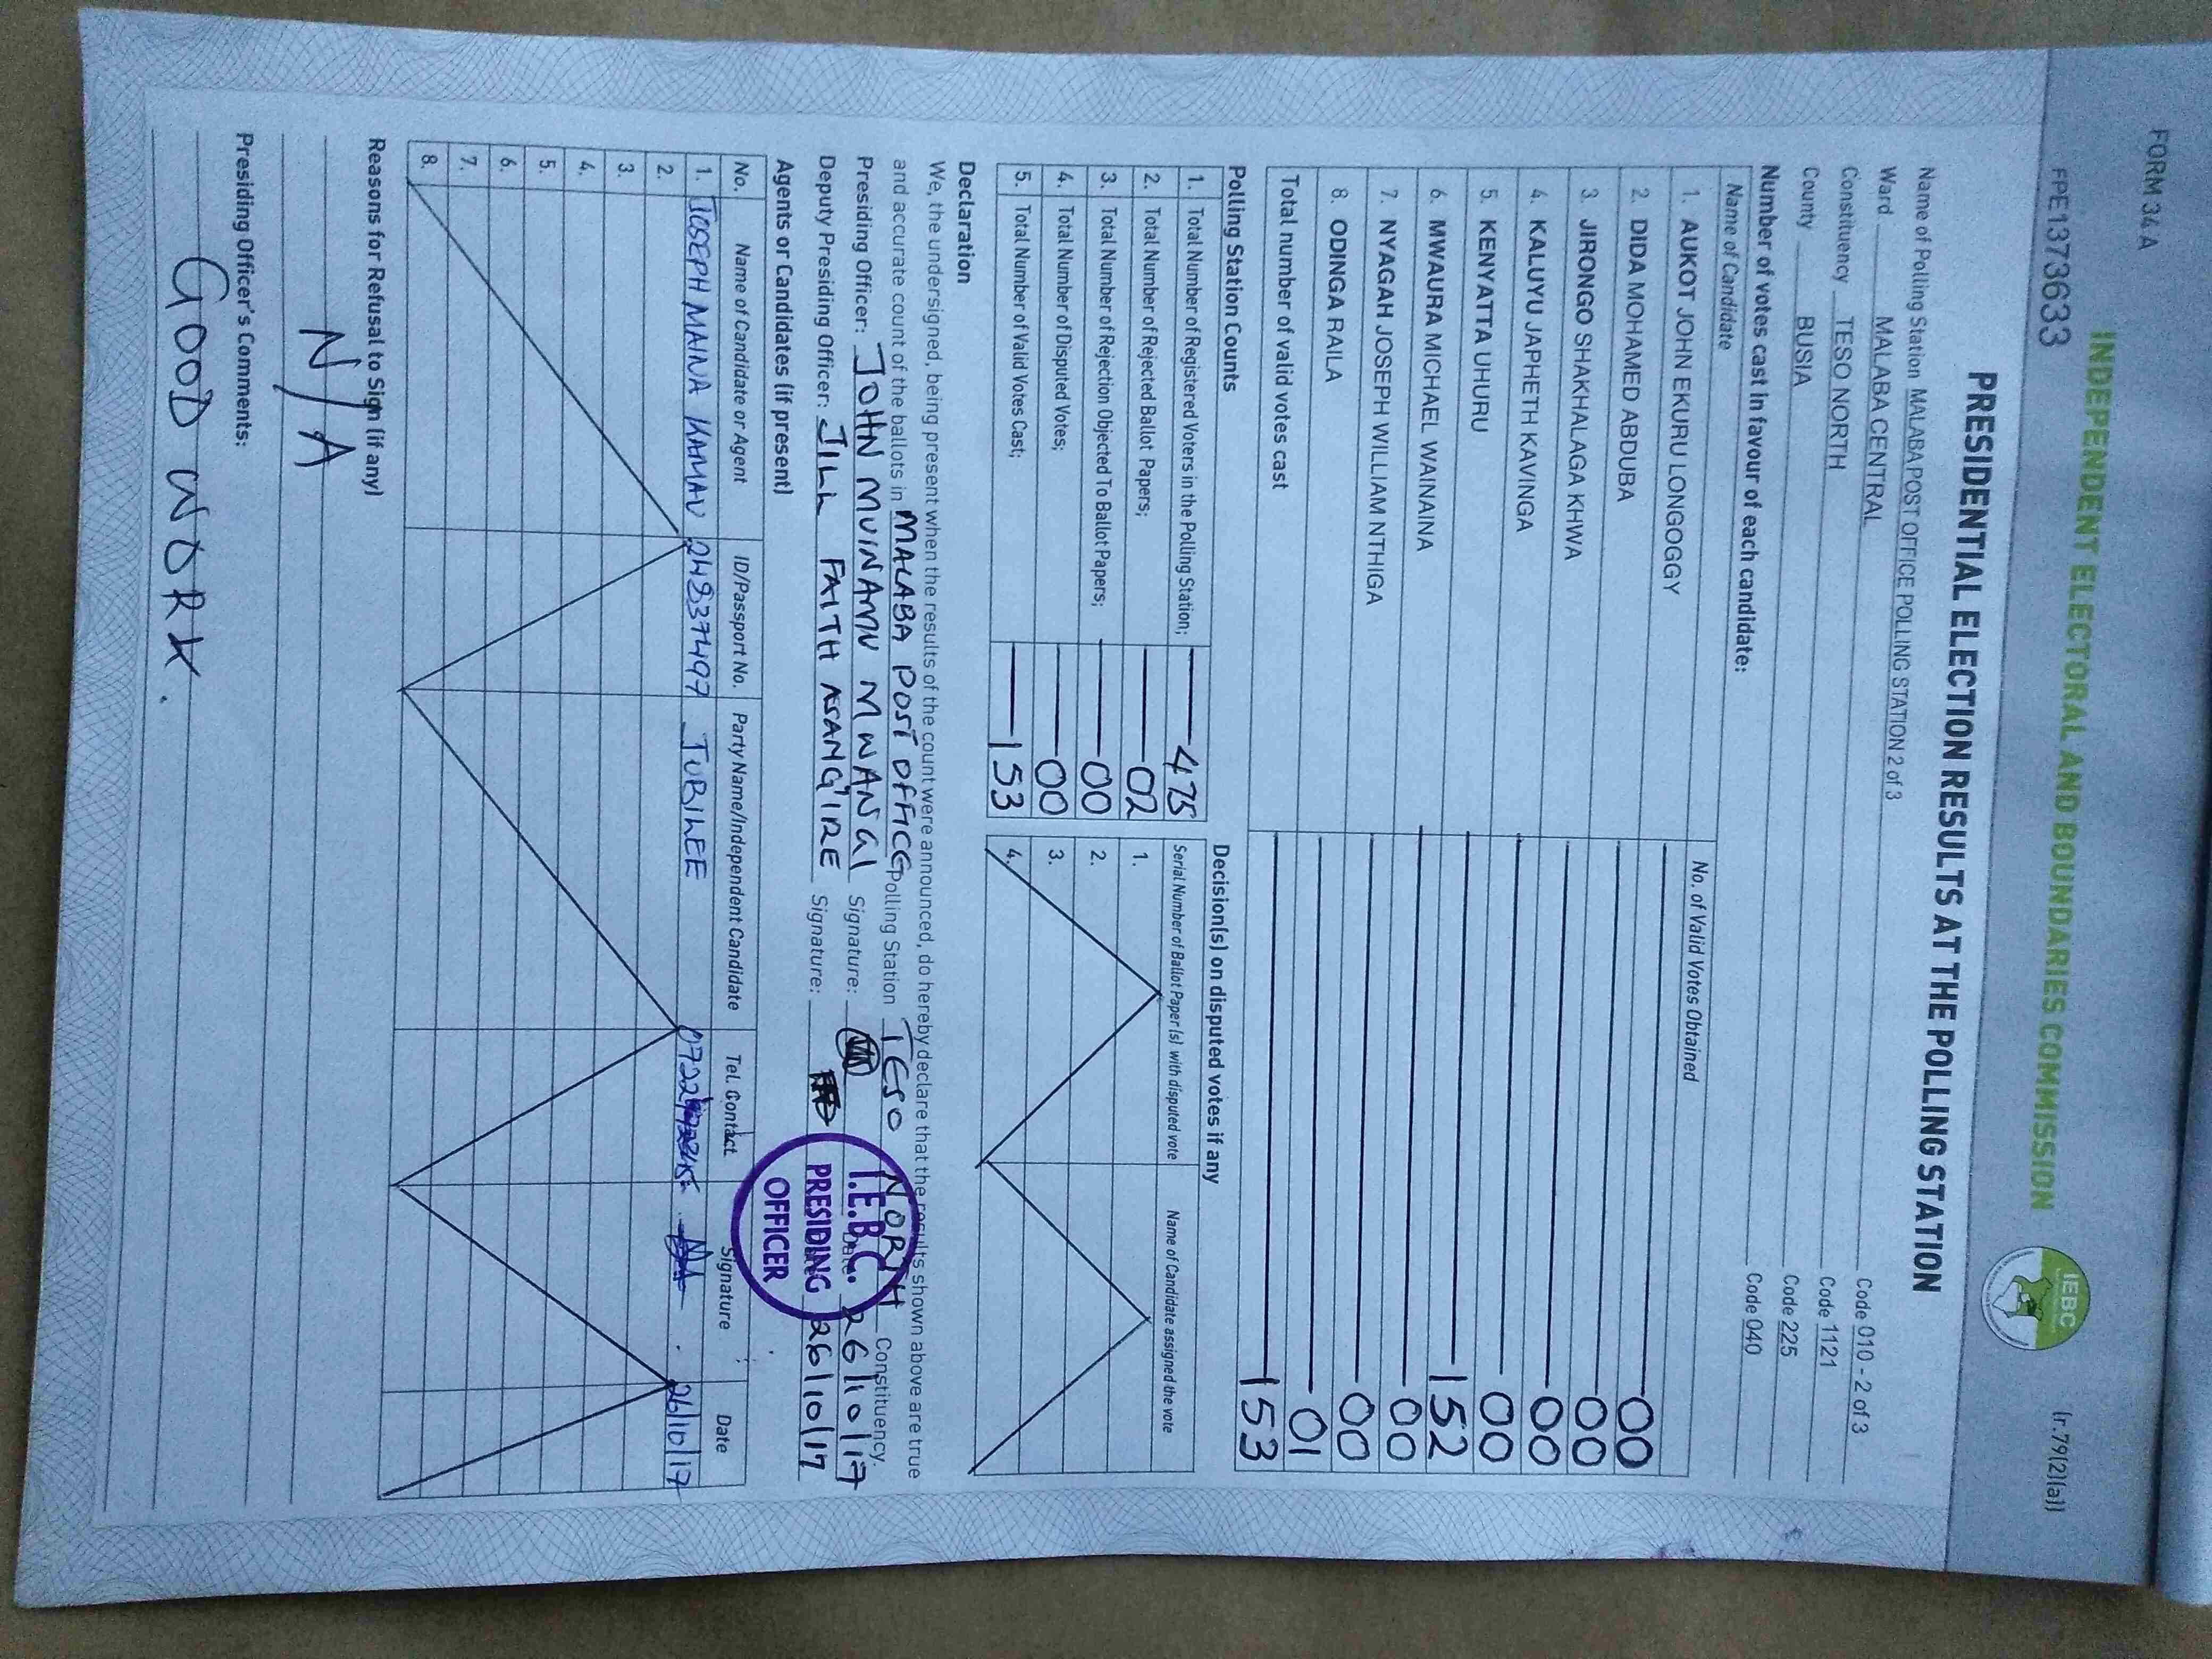 FORM 34A
INDEPENDENT ELECTORAL AND BOUNDARIES COMMISSION
IEBC
(r.79(2)(a))
FPE1373633
PRESIDENTIAL ELECTION RESULTS AT THE POLLING STATION
Name of Polling Station MALABA POST OFFICE POLLING STATION 2 of 3 Code 010 - 2 of 3
Ward MALABA CENTRAL Code 1121
Constituency TESO NORTH Code 225
County BUSIA Code 040
Number of votes cast in favour of each candidate:
Name of Candidate No. of Valid Votes Obtained
1. AUKOT JOHN EKURU LONGOGGY 00
2. DIDA MOHAMED ABDUBA 00
3. JIRONGO SHAKHALAGA KHWA 00
4. KALUYU JAPHETH KAVINGA 00
5. KENYATTA UHURU 152
6. MWAURA MICHAEL WAINAINA 00
7. NYAGAH JOSEPH WILLIAM NTHIGA 00
8. ODINGA RAILA 01
Total number of valid votes cast 153
Polling Station Counts
1. Total Number of Registered Voters in the Polling Station; 475
2. Total Number of Rejected Ballot Papers; 02
3. Total Number of Rejection Objected To Ballot Papers; 00
4. Total Number of Disputed Votes; 00
5. Total Number of Valid Votes Cast; 153
Decision(s) on disputed votes if any
Serial Number of Ballot Paper (s) with disputed vote Name of Candidate assigned the vote
1.
2.
3.
4.
Declaration
We, the undersigned, being present when the results of the count were announced, do hereby declare that the results shown above are true
and accurate count of the ballots in MALABA POST OFFICE Polling Station TESO NORTH Constituency.
Presiding Officer: JOHN MUINAMN MWANGI Signature: Date 26/10/17
Deputy Presiding Officer: JILL FAITH ASANG'IRE Signature: 26/10/17
I.E.B.C.
PRESIDING
OFFICER
Agents or Candidates (if present)
No. Name of Candidate or Agent ID/Passport No. Party Name/Independent Candidate Tel. Contact Signature Date
1. JOSEPH MAINA KAMAU 24837497 JUBILEE 26/10/17
2.
3.
4.
5.
6.
7.
8.
Reasons for Refusal to Sign (if any)
N/A
Presiding Officer's Comments:
GOOD WORK.